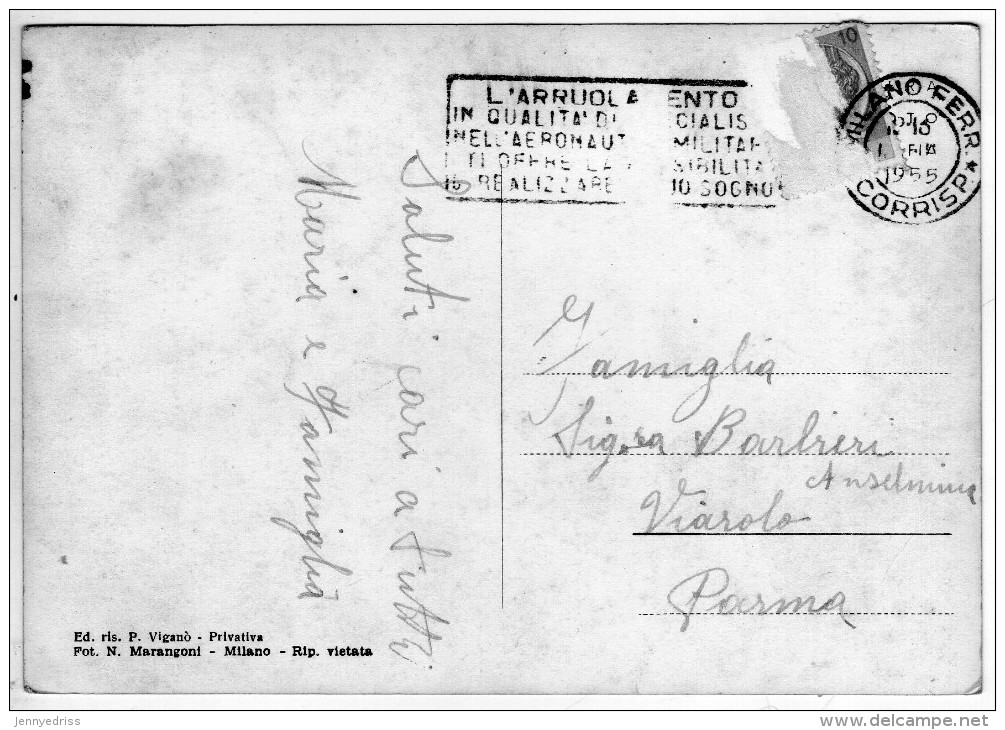 10
L'ARRUOLA ENTO
IN QUALITA' DI CIALIS
NELL'AERONAUT MILITAR
TI OFFRE LA SIBILITA
REALIZZARE IO SOGNO
MILANO FERR.
1955
CORRISP. ★
Saluti cari a Tutti
Maria e Famiglia
Famiglia
Sig.ra Barbieri
Anselmina
Viarolo
Parma
Ed. ris. P. Viganò - Privativa
Fot. N. Marangoni - Milano - Rip. vietata
jennyedriss
delcampe.net